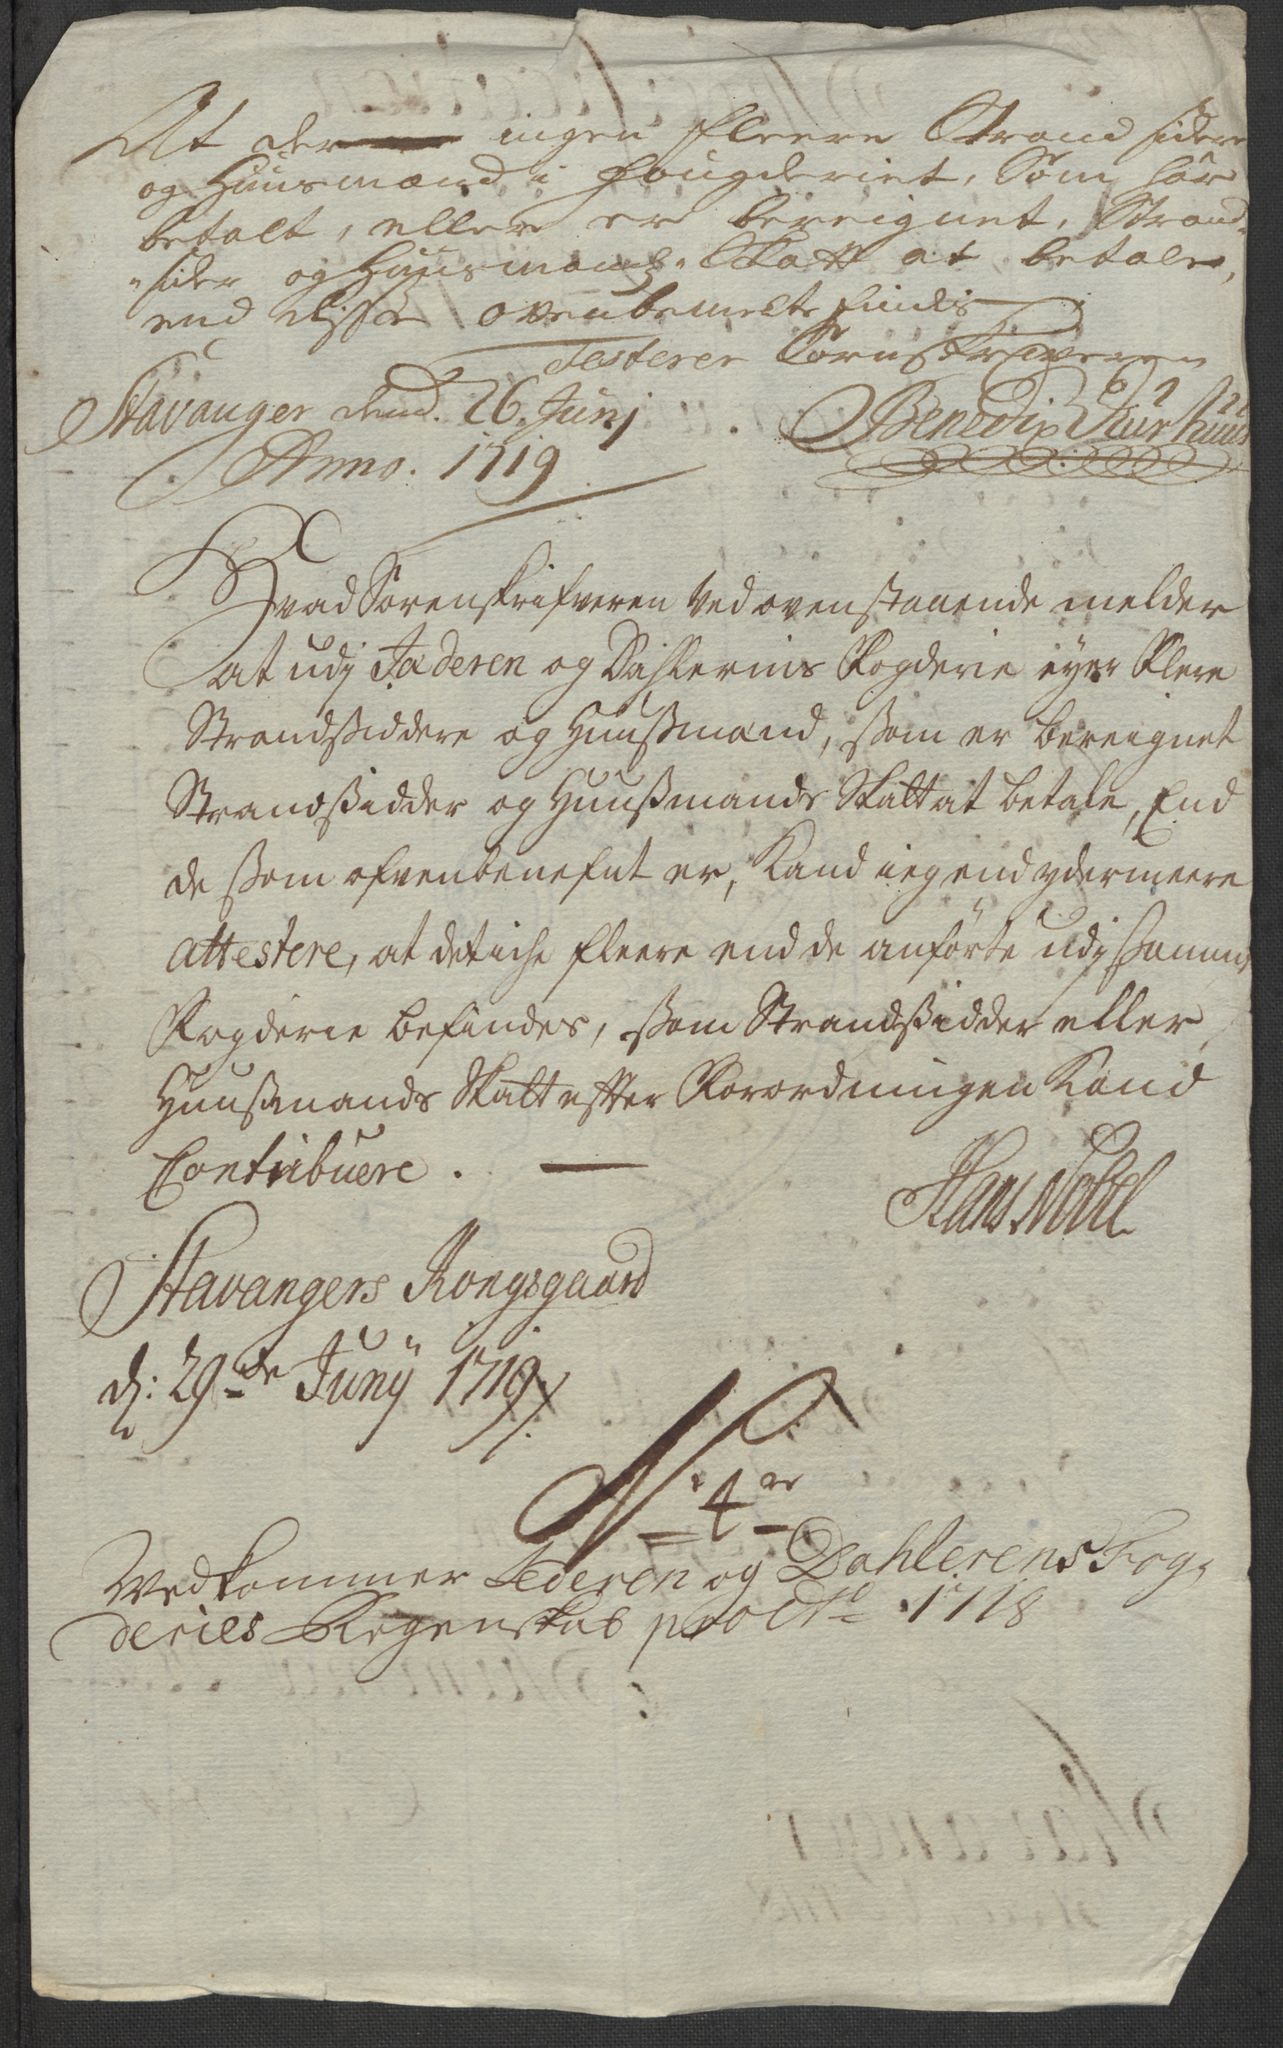 At der ingen fleere Strand sidere
og Huusmænd i Fougderiet, Som har
betalt, eller er bereignet, Strand-
sider og Huusmands Skatt at betale,
end disse ovenbemelte findis
Testerer Sorenskriveren
Stavanger dend. 26. Junj Benedix
Anno. 1719
Hvad Sorenskrifveren ved ovenstaaende melder
at udj Jæderen og Dahlerns Fogderie eyer flere
Strandsiddere og Huusmænd, som er bereignet
Strandsidder og Huusmands Skatt at betale, End
de som ofvenbenefnt er, Kand ieg end ydermeere
attestere, at det iche fleere end de anförte udj samme
Fogderie befindes, som Strandsidder eller
Huusmands Skatt efter Forordningen Kand
Contribuere.
Hans Nobel
Stavangers Kongsgaard
d: 29de Junij 1719
No 4
Vedkommer Jederen og Dahlerens Fog-
deries Regenskab pro Ao 1718